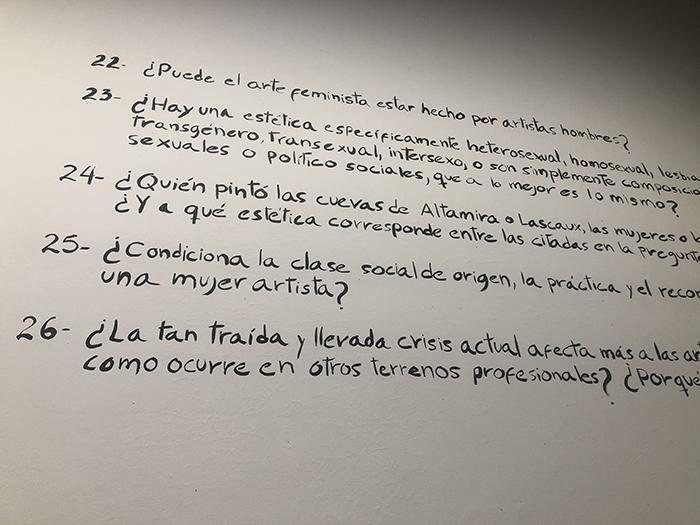 22- ¿Puede el arte feminista estar hecho por artistas hombres?
23- ¿Hay una estética específicamente heterosexual, homosexual, lesbia
transgénero, transexual, intersexo, o son simplemente composicio
sexuales o político sociales, que a lo mejor es lo mismo?
24- ¿Quién pintó las cuevas de Altamira o Lascaux, las mujeres o l
¿Y a qué estética corresponde entre las citadas en la pregunt
25- ¿Condiciona la clase social de origen, la práctica y el recor
una mujer artista?
26- ¿La tan traída y llevada crisis actual afecta más a las ar
como ocurre en otros terrenos profesionales? ¿Porqué